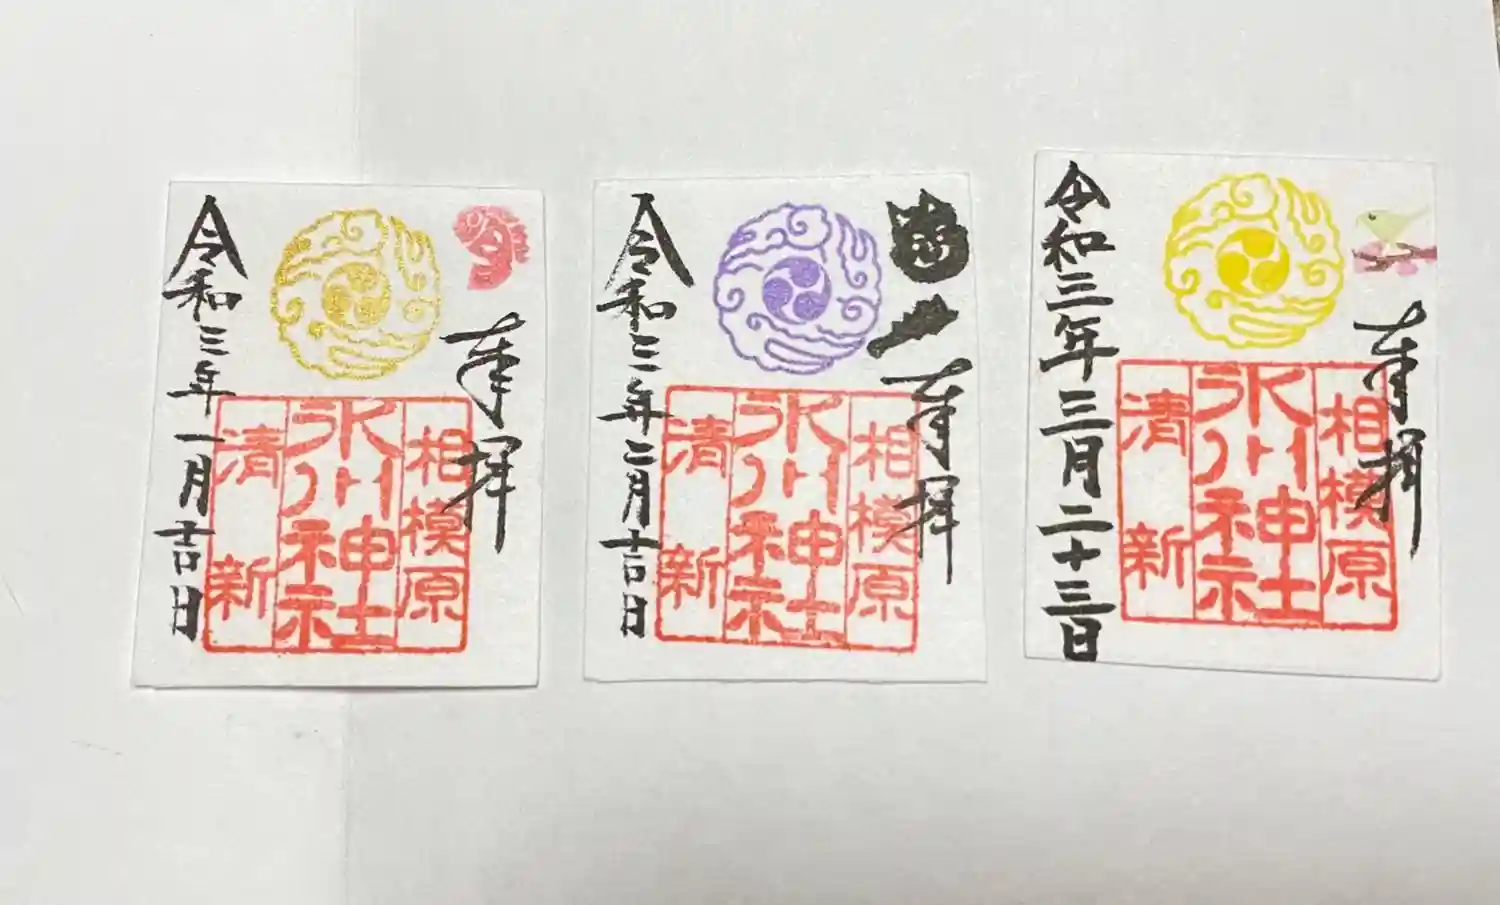 奉拝
相模原
氷川神社
清新
令和三年一月吉日
奉拝
相模原
氷川神社
清新
令和三年二月吉日
奉拝
相模原
氷川神社
清新
令和三年三月二十三日